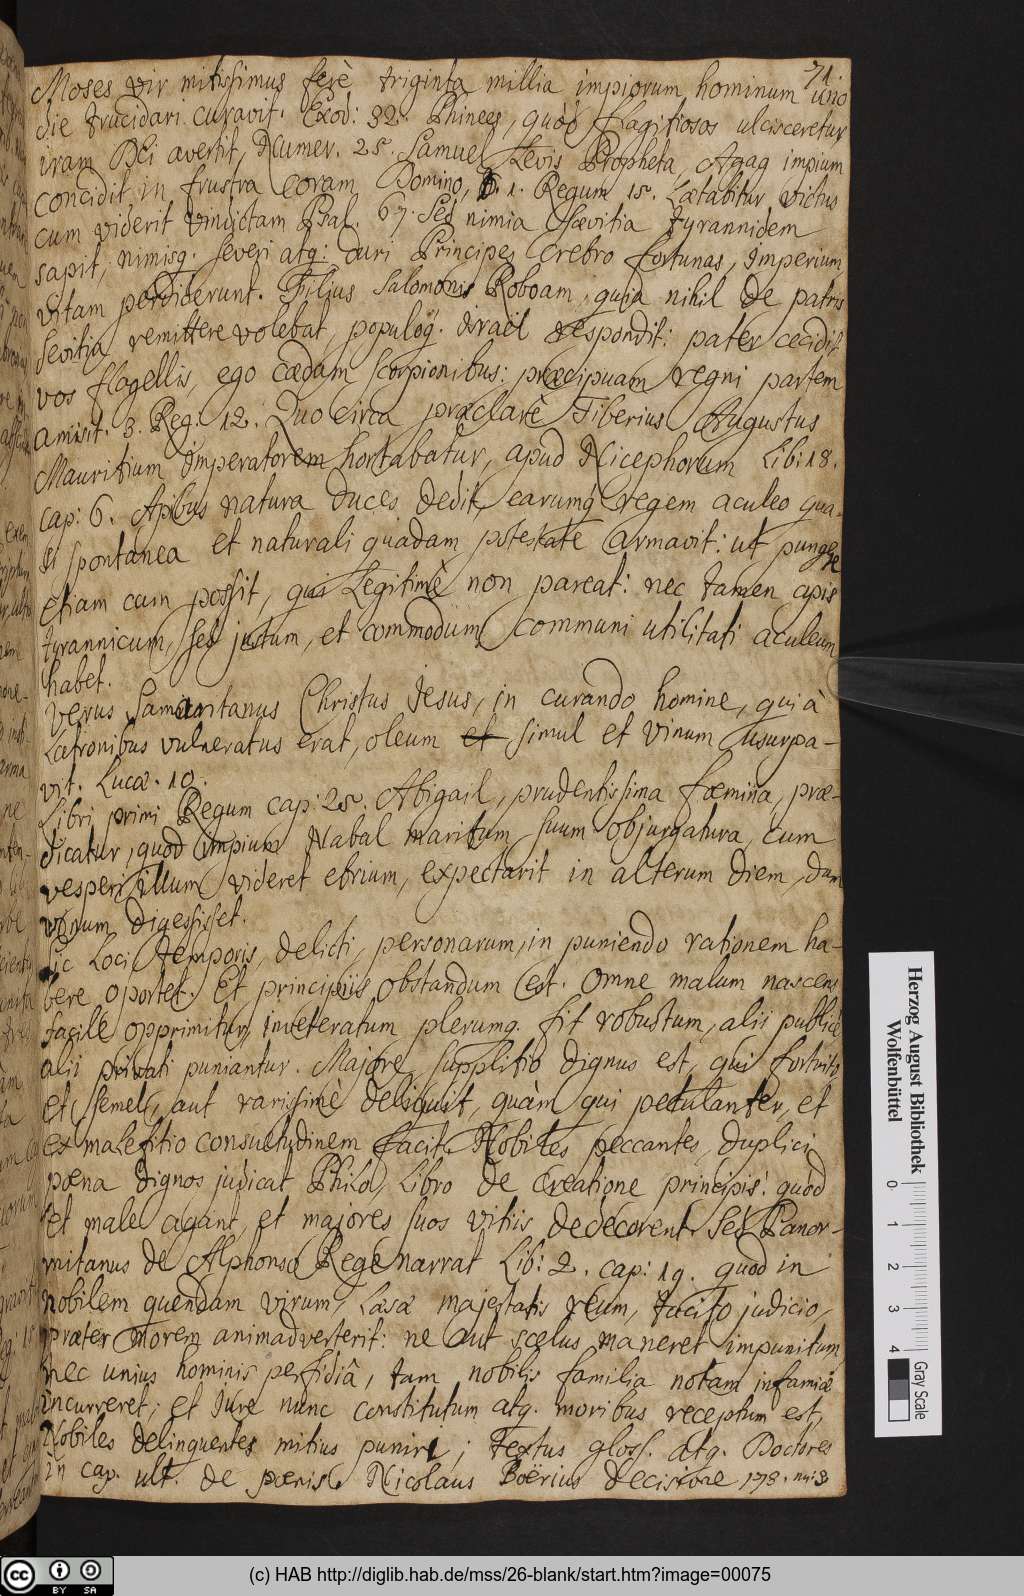 71.
Moses vir mitissimus ferè triginta millia impiorum hominum uno
die trucidari curavit. Exod: 32. Phinees, quòd flagitiosos ulcisceretur,
iram Dei avertit, Numer. 25. Samuel Levis Propheta, Agag impium
concidit in frustra coram Domino, 1. Regum 15. Lætabitur victus
cum viderit vindictam Psal. 67. Sed nimia sævitia tyrannidem
sapit, nimisq. severi atq: duri Principes crebro fortunas, Imperium,
vitam perdiderunt. Filius Salomonis Roboam, quia nihil de patris
sevitia remittere volebat, populoq. Israël respondit: pater cecidit
vos flagellis, ego cædam scorpionibus: præcipuam regni partem
amisit. 3. Reg. 12. Quo circa præclarè Tiberius Augustus
Mauritium Imperatorem hortabatur, apud Nicephorum Lib: 18.
cap: 6. Apibus natura duces dedit, earumq regem aculeo qua-
si spontanea et naturali quadam potestate armavit: ut pungere
etiam cum possit, qui Legitimè non pareat: nec tamen apis
tyrannicum, sed justum, et commodum communi utilitati aculeum
habet.
Verus Samaritanus Christus Jesus, in curando homine, qui à
Latronibus vulneratus erat, oleum et simul et vinum usurpa-
vit. Lucæ. 10.
Libri primi Regum cap: 25. Abigail, prudentissima fœmina, præ-
dicatur, quod impium Nabal maritum suum objurgatura, cum
vesperi illum videret ebrium, expectarit in alterum diem, dum
vinum digessisset.
Sic Loci, temporis, delicti, personarum, in puniendo rationem ha-
bere oportet. Et principiis obstandum est. Omne malum nascens
facilè opprimitur, inveteratum plerumq. fit robustum, alii publicè
alii privati puniantur. Majore supplitio dignus est, qui fortuito
et semel, aut rarissimè deliquit, quàm qui petulanter, et
ex malefitio consuetudinem facit. Nobiles peccantes, duplici
pœna dignos judicat Philo, Libro de Creatione principis: quod
et male agant, et majores suos vitiis dedecorent. Sed Panor-
mitanus de Alphonso Rege narrat Lib: 2. cap: 19. quod in
nobilem quendam virum, Læsæ majestatis reum, tacito judicio,
præter morem animadverterit: ne aut scelus maneret impunitum,
nec unius hominis perfidiâ, tam nobilis familia notam infamiæ
incurreret; et Jure nunc constitutum atq. moribus receptum est,
Nobiles delinquentes mitius puniri; Textus gloss. atq. Doctores
in cap. ult. de pœnis. Nicolaus Boërius decisione 178. nu: 3
Herzog August Bibliothek
Wolfenbüttel
0 1 2 3 4
Gray Scale
CC BY SA
(c) HAB http://diglib.hab.de/mss/26-blank/start.htm?image=00075